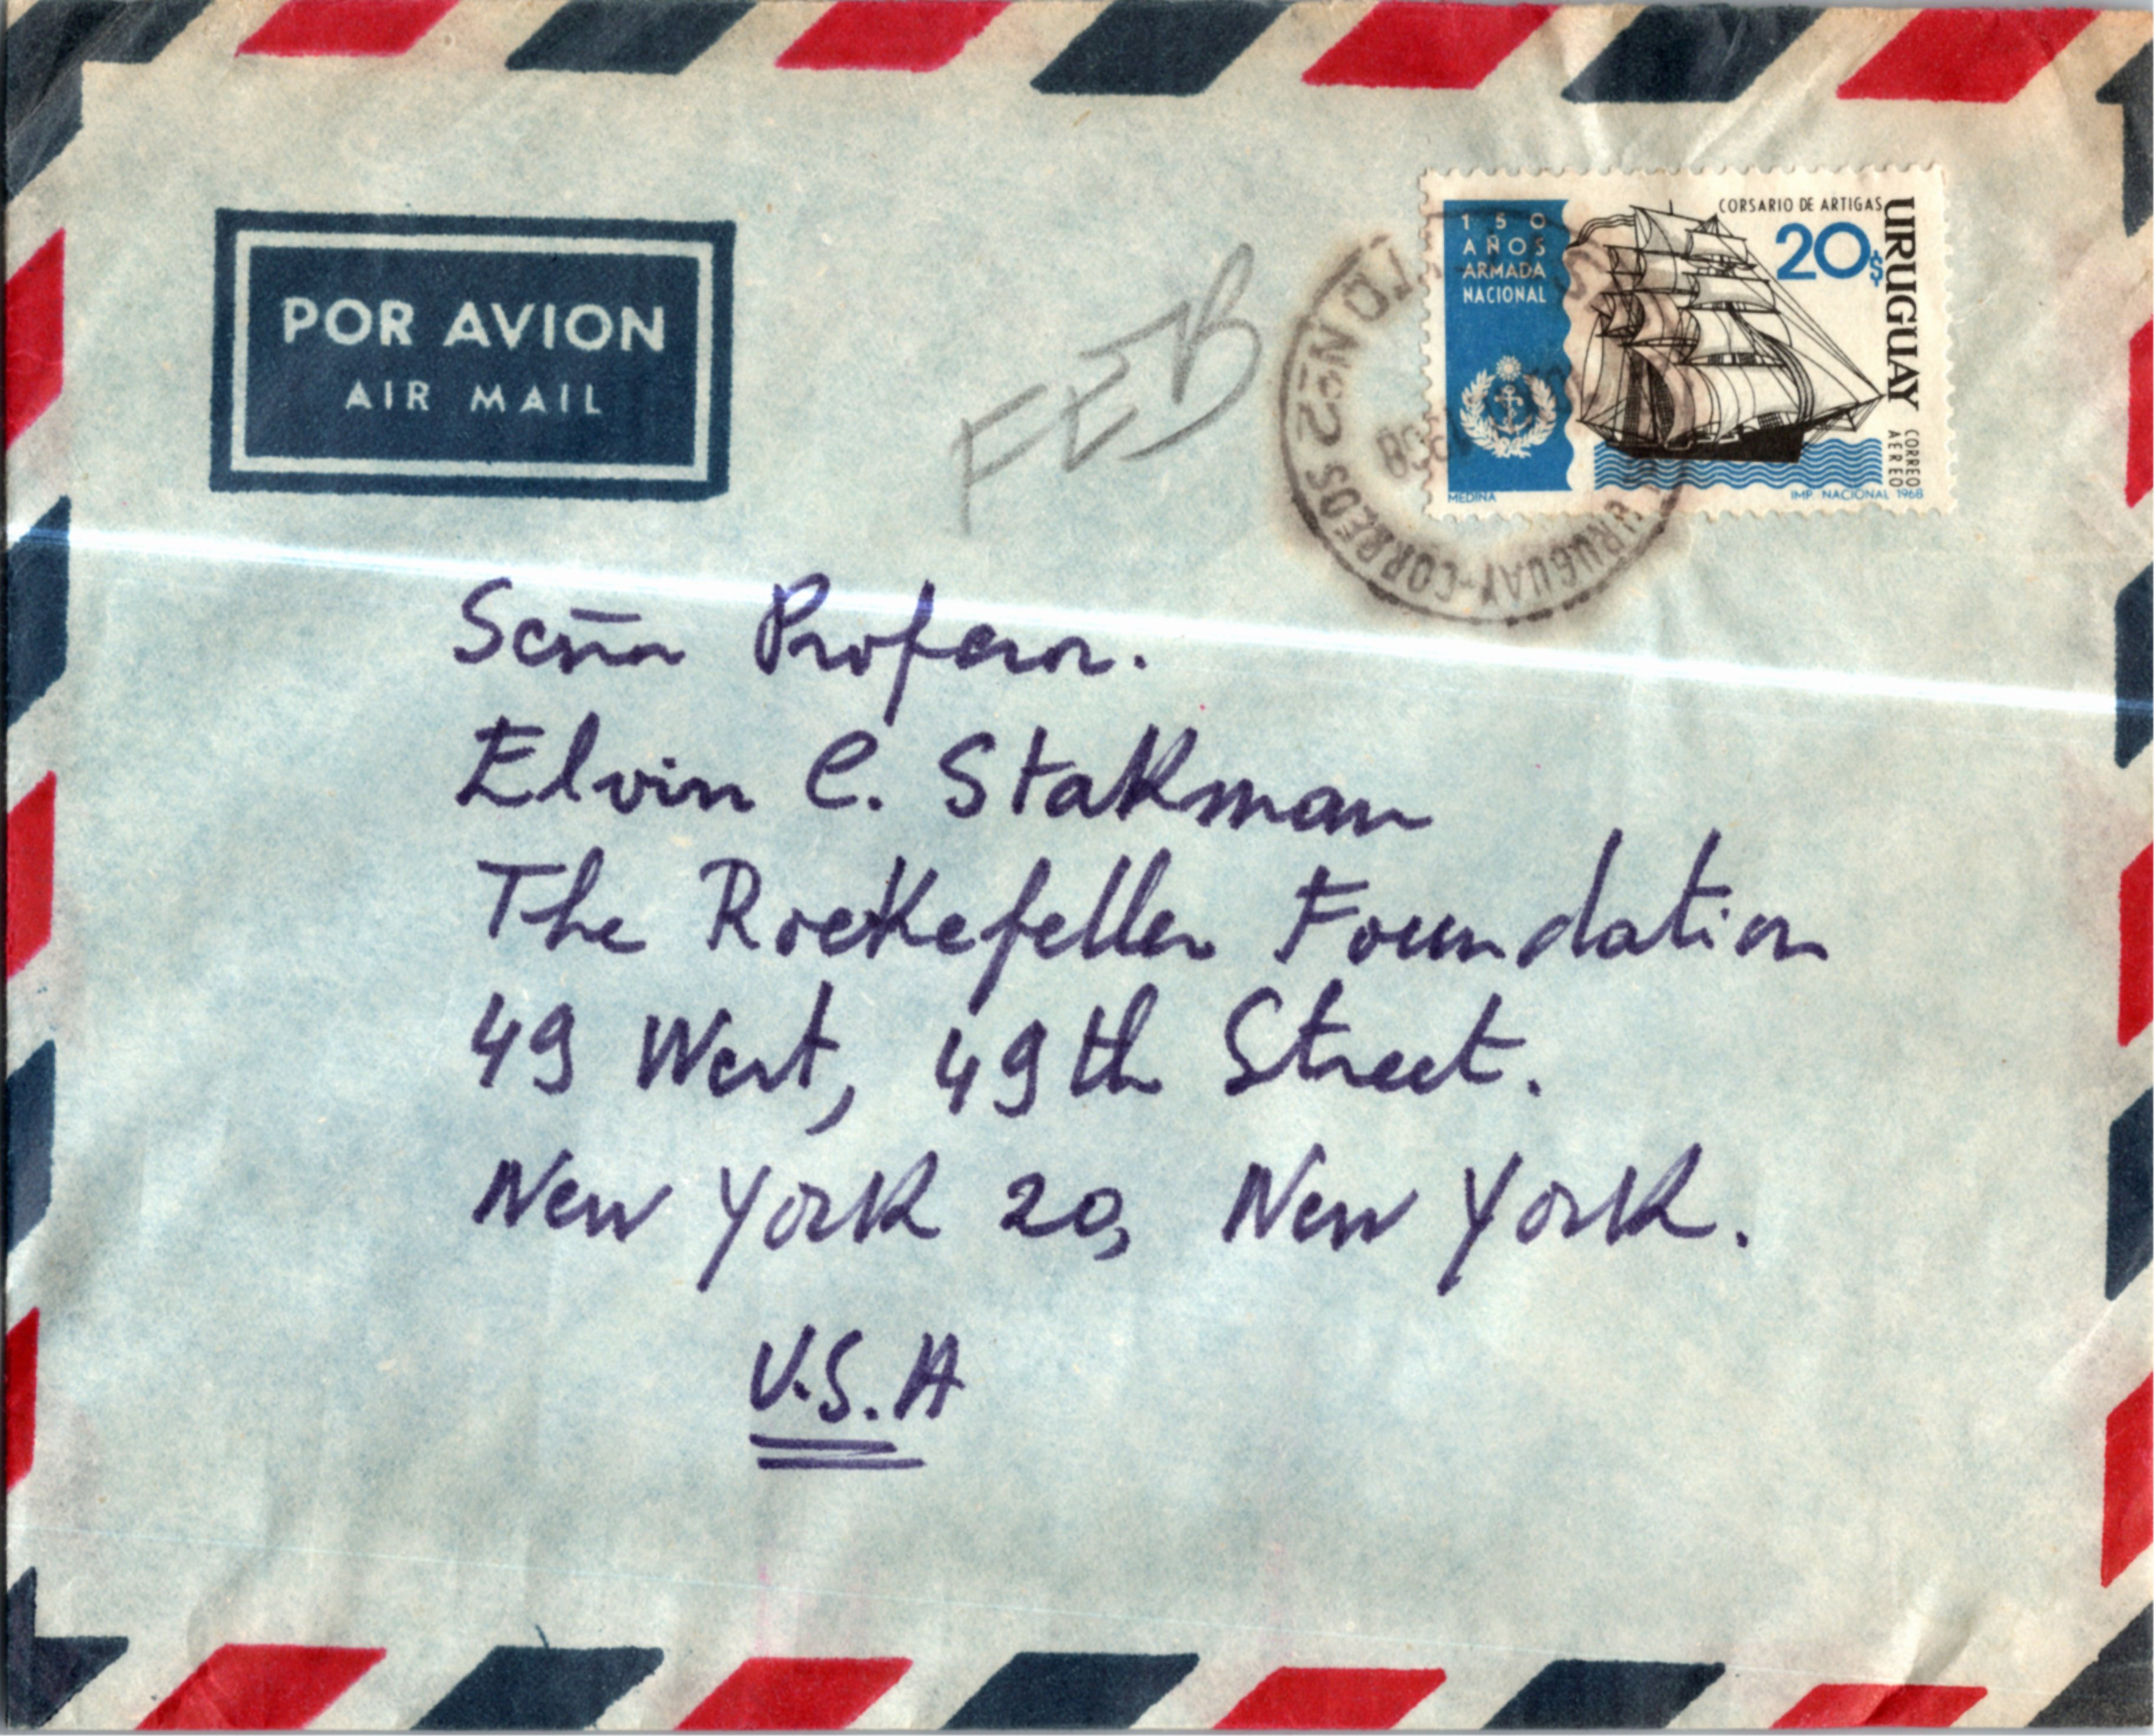 POR AVION
AIR MAIL
FEB
150
AÑOS
ARMADA
NACIONAL
CORSARIO DE ARTIGAS
20$
URUGUAY
CORREO
AEREO
MEDINA
IMP. NACIONAL 1968
Nº2
URUGUAY-CORREOS
Señor Profesor.
Elvin C. Stakman
The Rockefeller Foundation
49 West, 49th Street.
New York 20, New York.
U.S.A